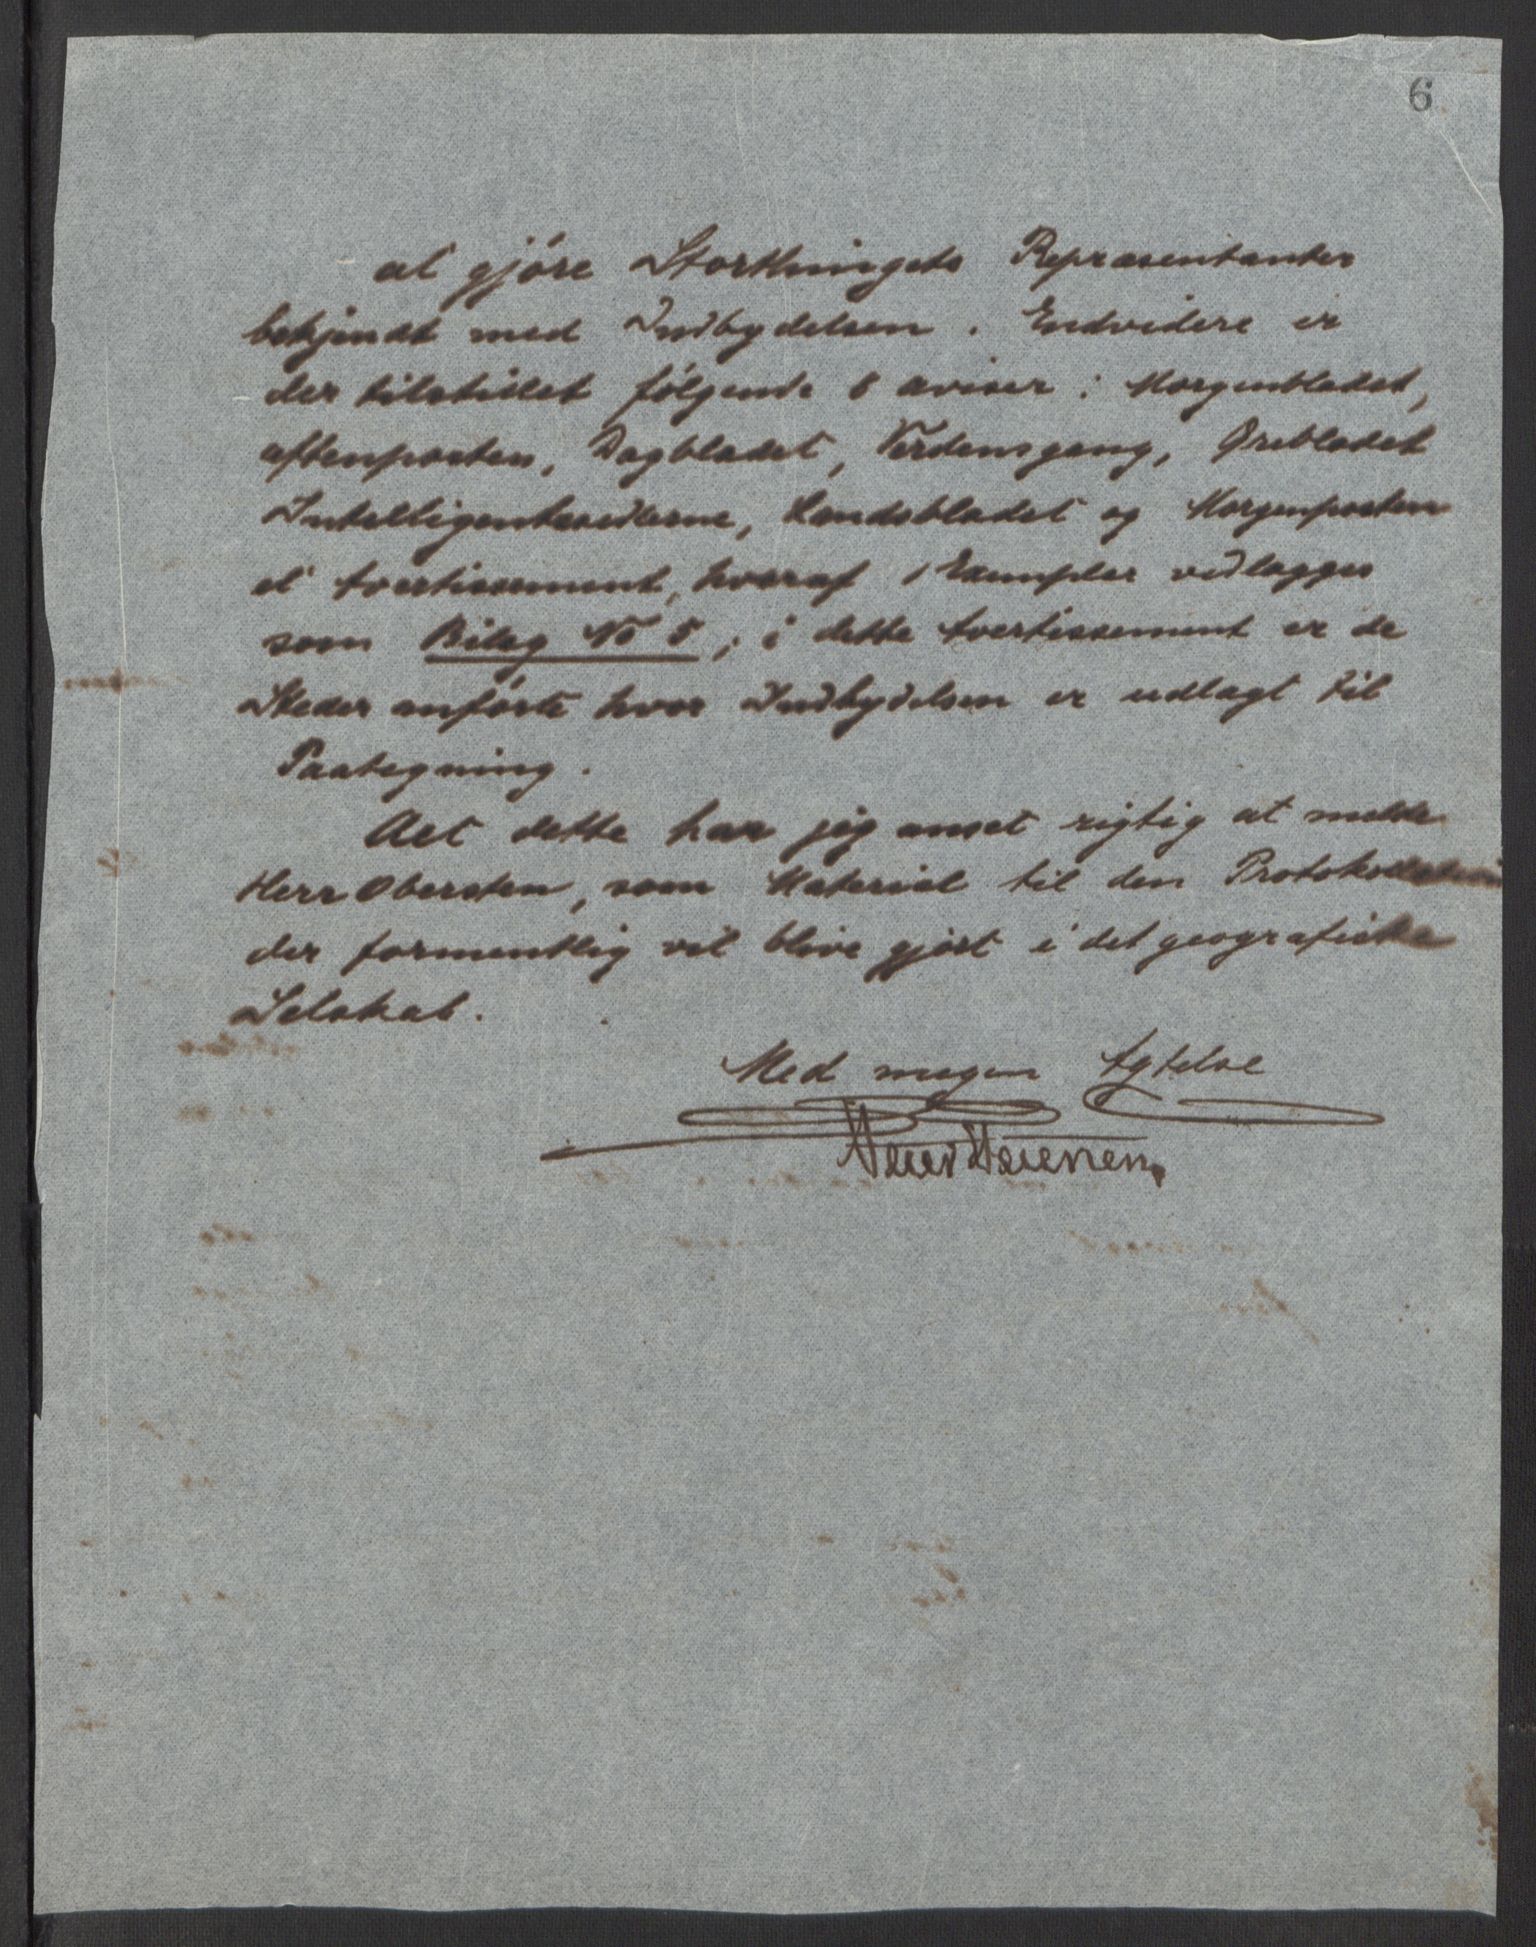 6
at gjøre Storthingets Repræsentanter
bekjendt med Indbydelsen. Endvidere er
der tilstillet følgende 8 aviser: Morgenbladet,
aftenposten, Dagbladet, Verdensgang, Ørebladet
Intelligentssedlerne, Landsbladet og Morgenposten
et Avertissement, hvoraf 1 Exemplar vedlægges
som Bilag No 5; i dette Avertissement er de
Steder anførte hvor Indbydelsen er udlagt til
Paategning.
Alt dette har jeg anset rigtig at melde
Herr Obersten, som Material til den
der formentlig vil blive gjort i det geografiske
Selskab.
Med megen Agtelse